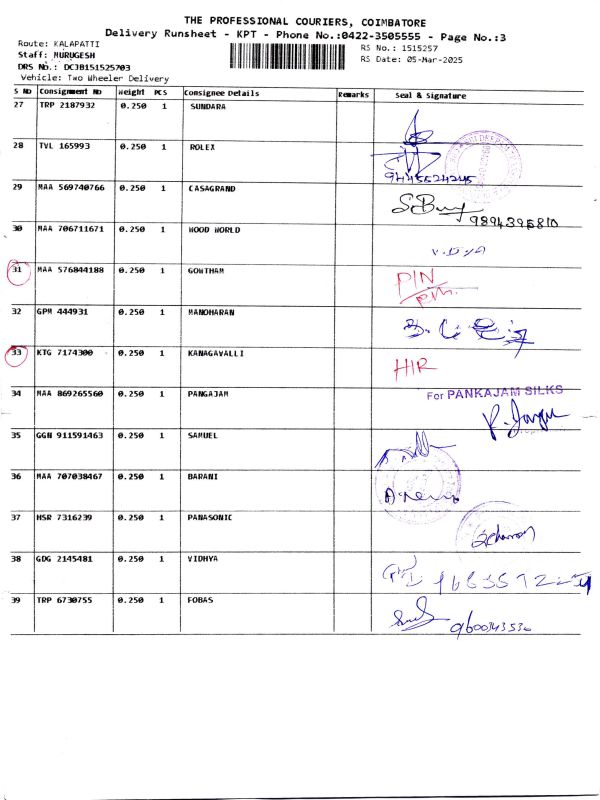 THE PROFESSIONAL COURIERS, COIMBATORE
Delivery Runsheet - KPT - Phone No.:0422-3505555 - Page No.:3
Route: KALAPATTI
RS No.: 1515257
Staff: MURUGESH
RS Date: 05-Mar-2025
DRS No.: DCJB151525703
Vehicle: Two Wheeler Delivery
S No Consignment No Weight PCS Consignee Details Remarks Seal & Signature
27 TRP 2187932 0.250 1 SUNDARA
28 TVL 165993 0.250 1 ROLEX
9445524245
29 MAA 569740766 0.250 1 CASAGRAND
9894395810
30 MAA 706711671 0.250 1 WOOD WORLD
31 MAA 576844188 0.250 1 GOWTHAM PIN
32 GPM 444931 0.250 1 MANOHARAN
33 KTG 7174300 0.250 1 KANAGAVALLI HIR
34 MAA 869265560 0.250 1 PANGAJAM For PANKAJAM SILKS
35 GGN 911591463 0.250 1 SAMUEL
36 MAA 707038467 0.250 1 BARANI
37 HSR 7316239 0.250 1 PANASONIC
38 GDG 2145481 0.250 1 VIDHYA
39 TRP 6730755 0.250 1 FOBAS